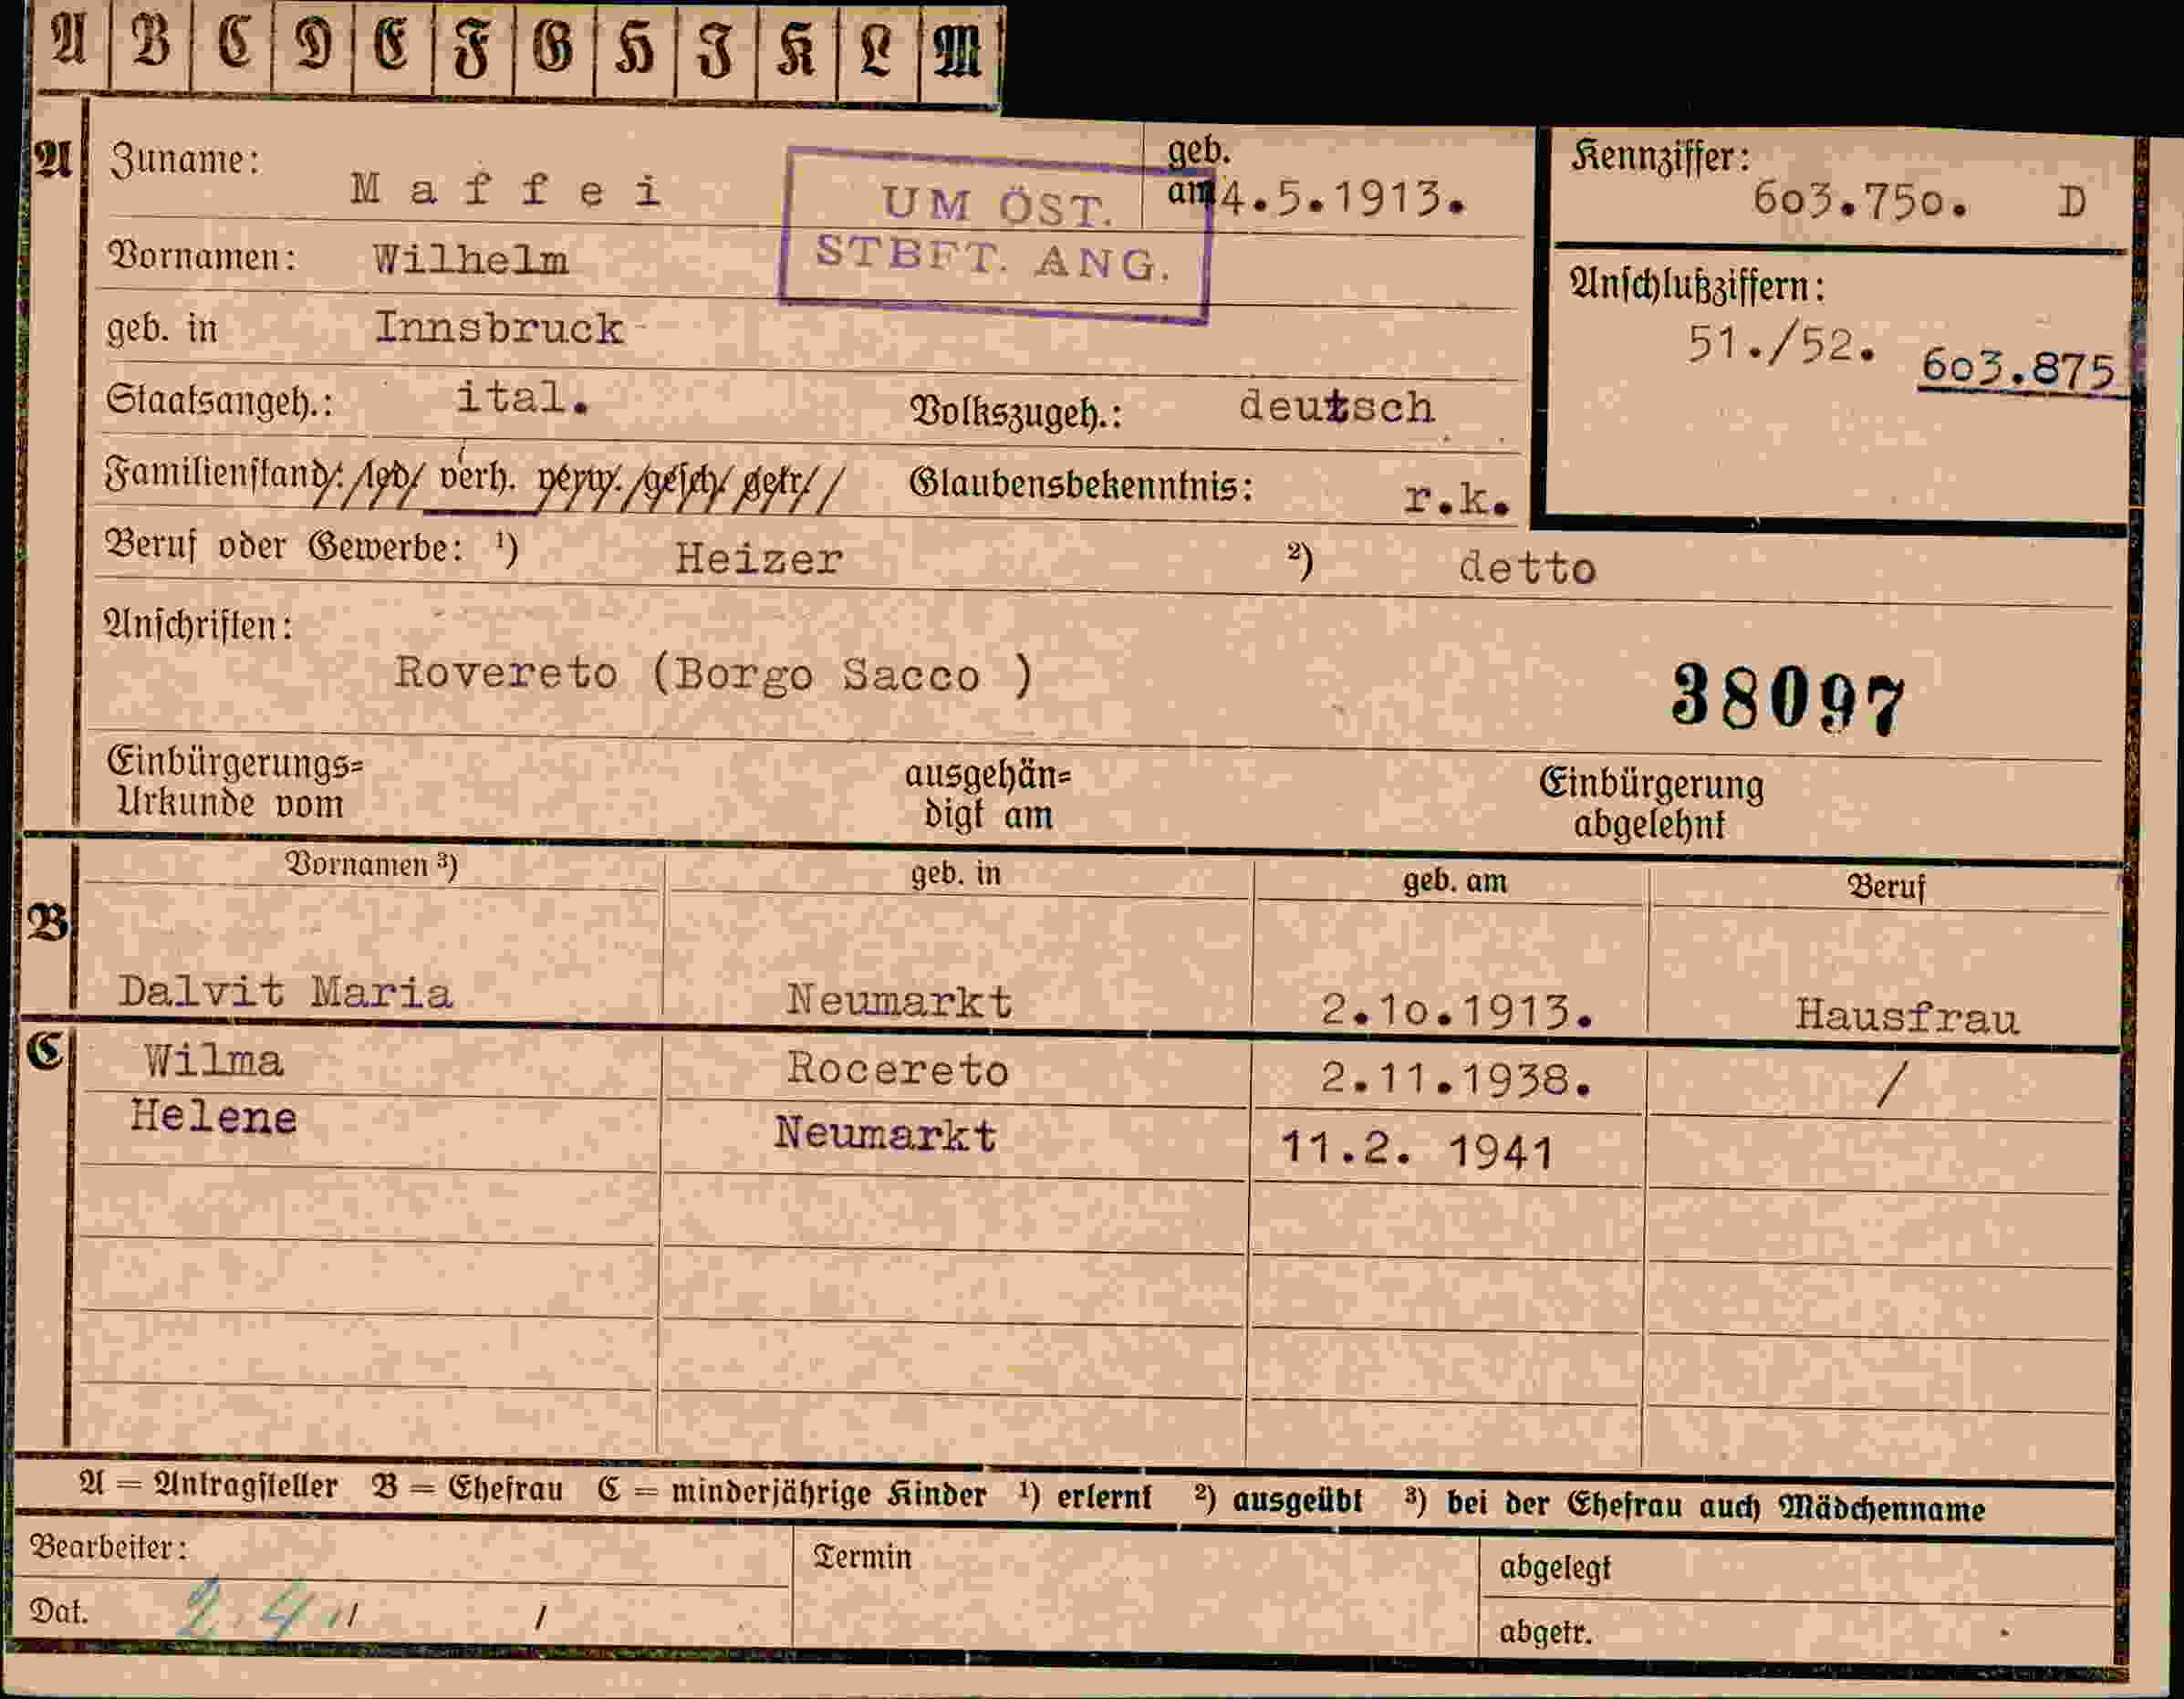 A B C D E F G H I K L M
A Zuname: Maffei geb. am 4.5.1913. Kennziffer: 603.750. D
UM ÖST. STBFT. ANG.
Vornamen: Wilhelm
Anschlußziffern: 51./52. 603.875
geb. in Innsbruck
Staatsangeh.: ital. Volkszugeh.: deutsch
Familienstand: led. verh. verw. gesch. getr. Glaubensbekenntnis: r.k.
Beruf oder Gewerbe: ¹) Heizer ²) detto
Anschriften:
Rovereto (Borgo Sacco ) 38097
Einbürgerungs= ausgehän= Einbürgerung
Urkunde vom digt am abgelehnt
Vornamen ³) geb. in geb. am Beruf
B
Dalvit Maria Neumarkt 2.10.1913. Hausfrau
C Wilma Rocereto 2.11.1938. /
Helene Neumarkt 11.2. 1941
A = Antragsteller B = Ehefrau C = minderjährige Kinder ¹) erlernt ²) ausgeübt ³) bei der Ehefrau auch Mädchenname
Bearbeiter: Termin abgelegt
Dat. 2.4. / / abgetr.